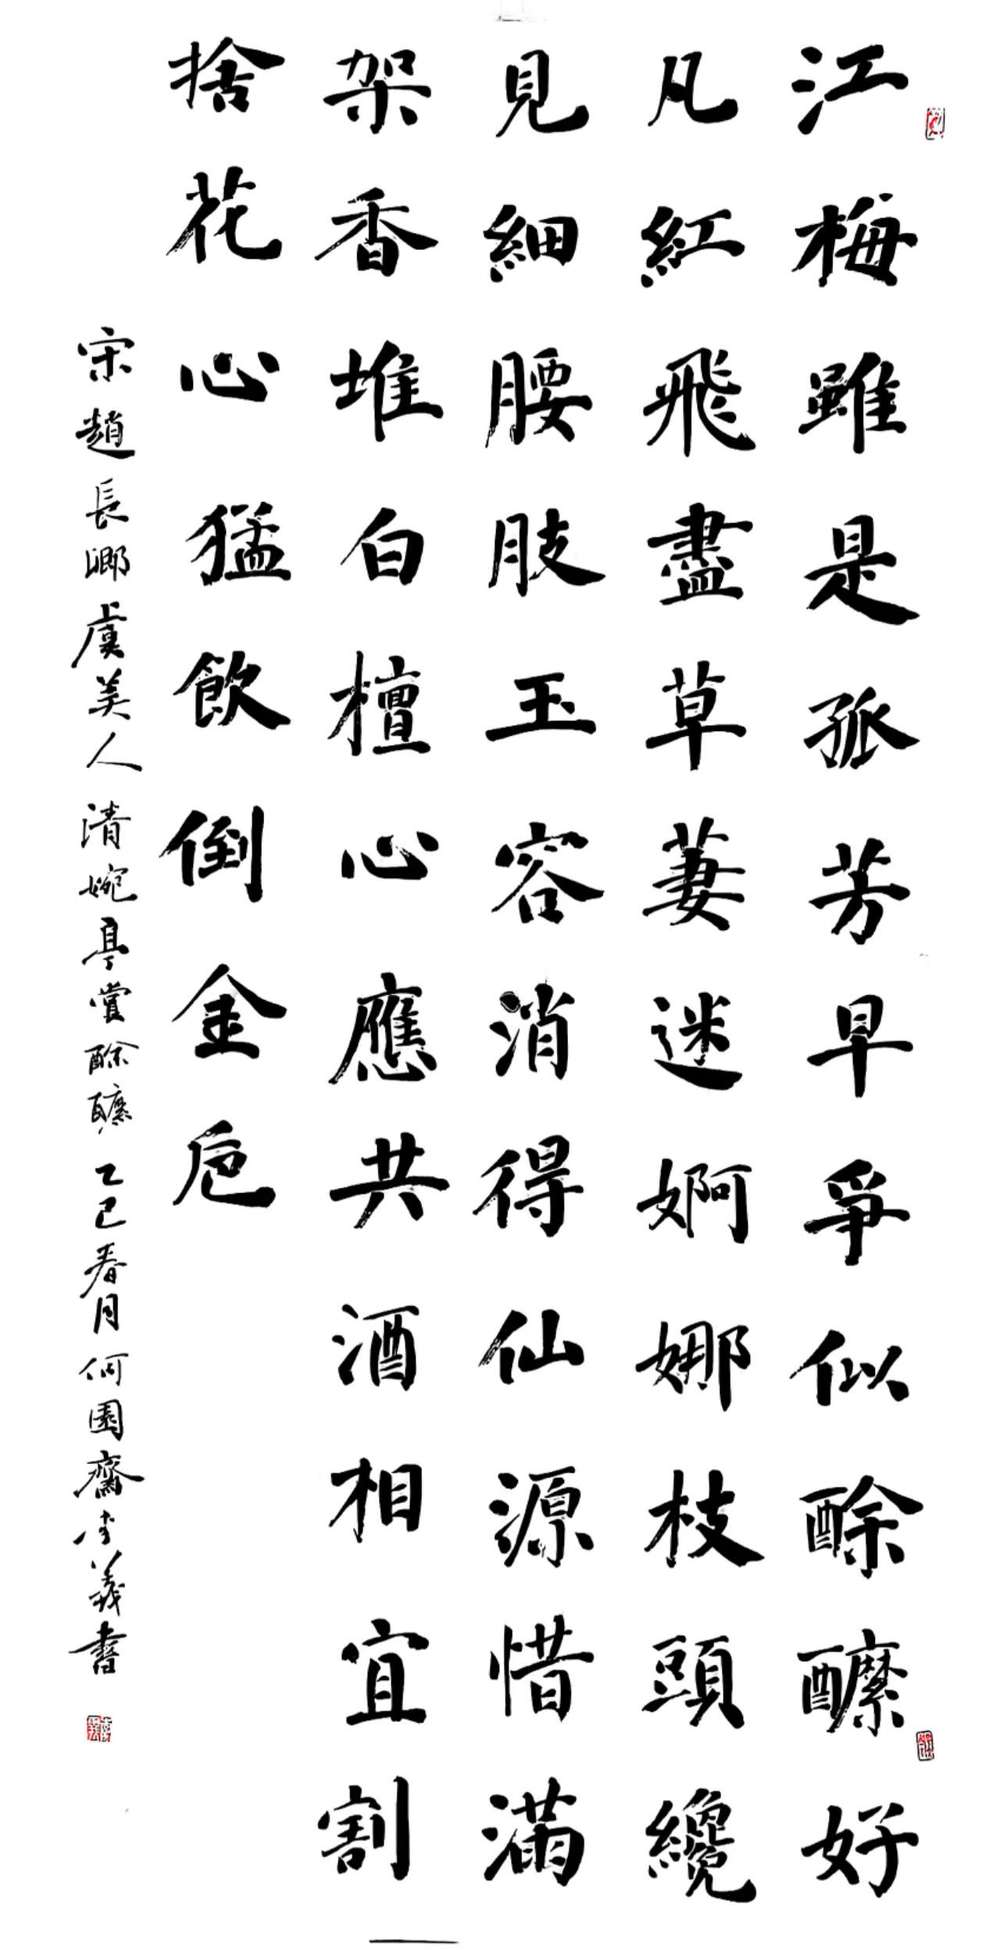 江梅雖是孤芳早爭似酴醾好
凡紅飛盡草萋迷婀娜枝頭纔
見細腰肢玉容消得仙源惜滿
架香堆白檀心應共酒相宜割
捨花心猛飲倒金卮
宋趙長卿虞美人清婉亭賞酴醾乙巳春月何園齋李義書